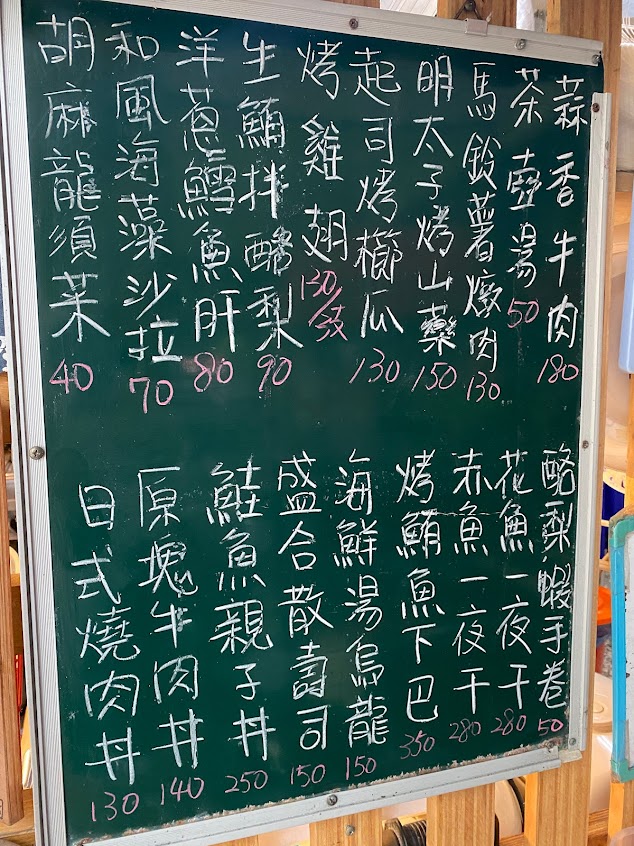 蒜香牛肉 180
茶壺湯 50
馬鈴薯燉肉 130
明太子烤山藥 150
起司烤櫛瓜 130
烤雞翅 130/支
生鮪拌酪梨 90
洋葱鱈魚肝 80
和風海藻沙拉 70
胡麻龍須菜 40
酪梨蝦手卷 50
花魚一夜干 280
赤魚一夜干 280
烤鮪魚下巴 350
海鮮湯烏龍 150
盛合散壽司 150
鮭魚親子丼 250
原塊牛肉丼 140
日式燒肉丼 130